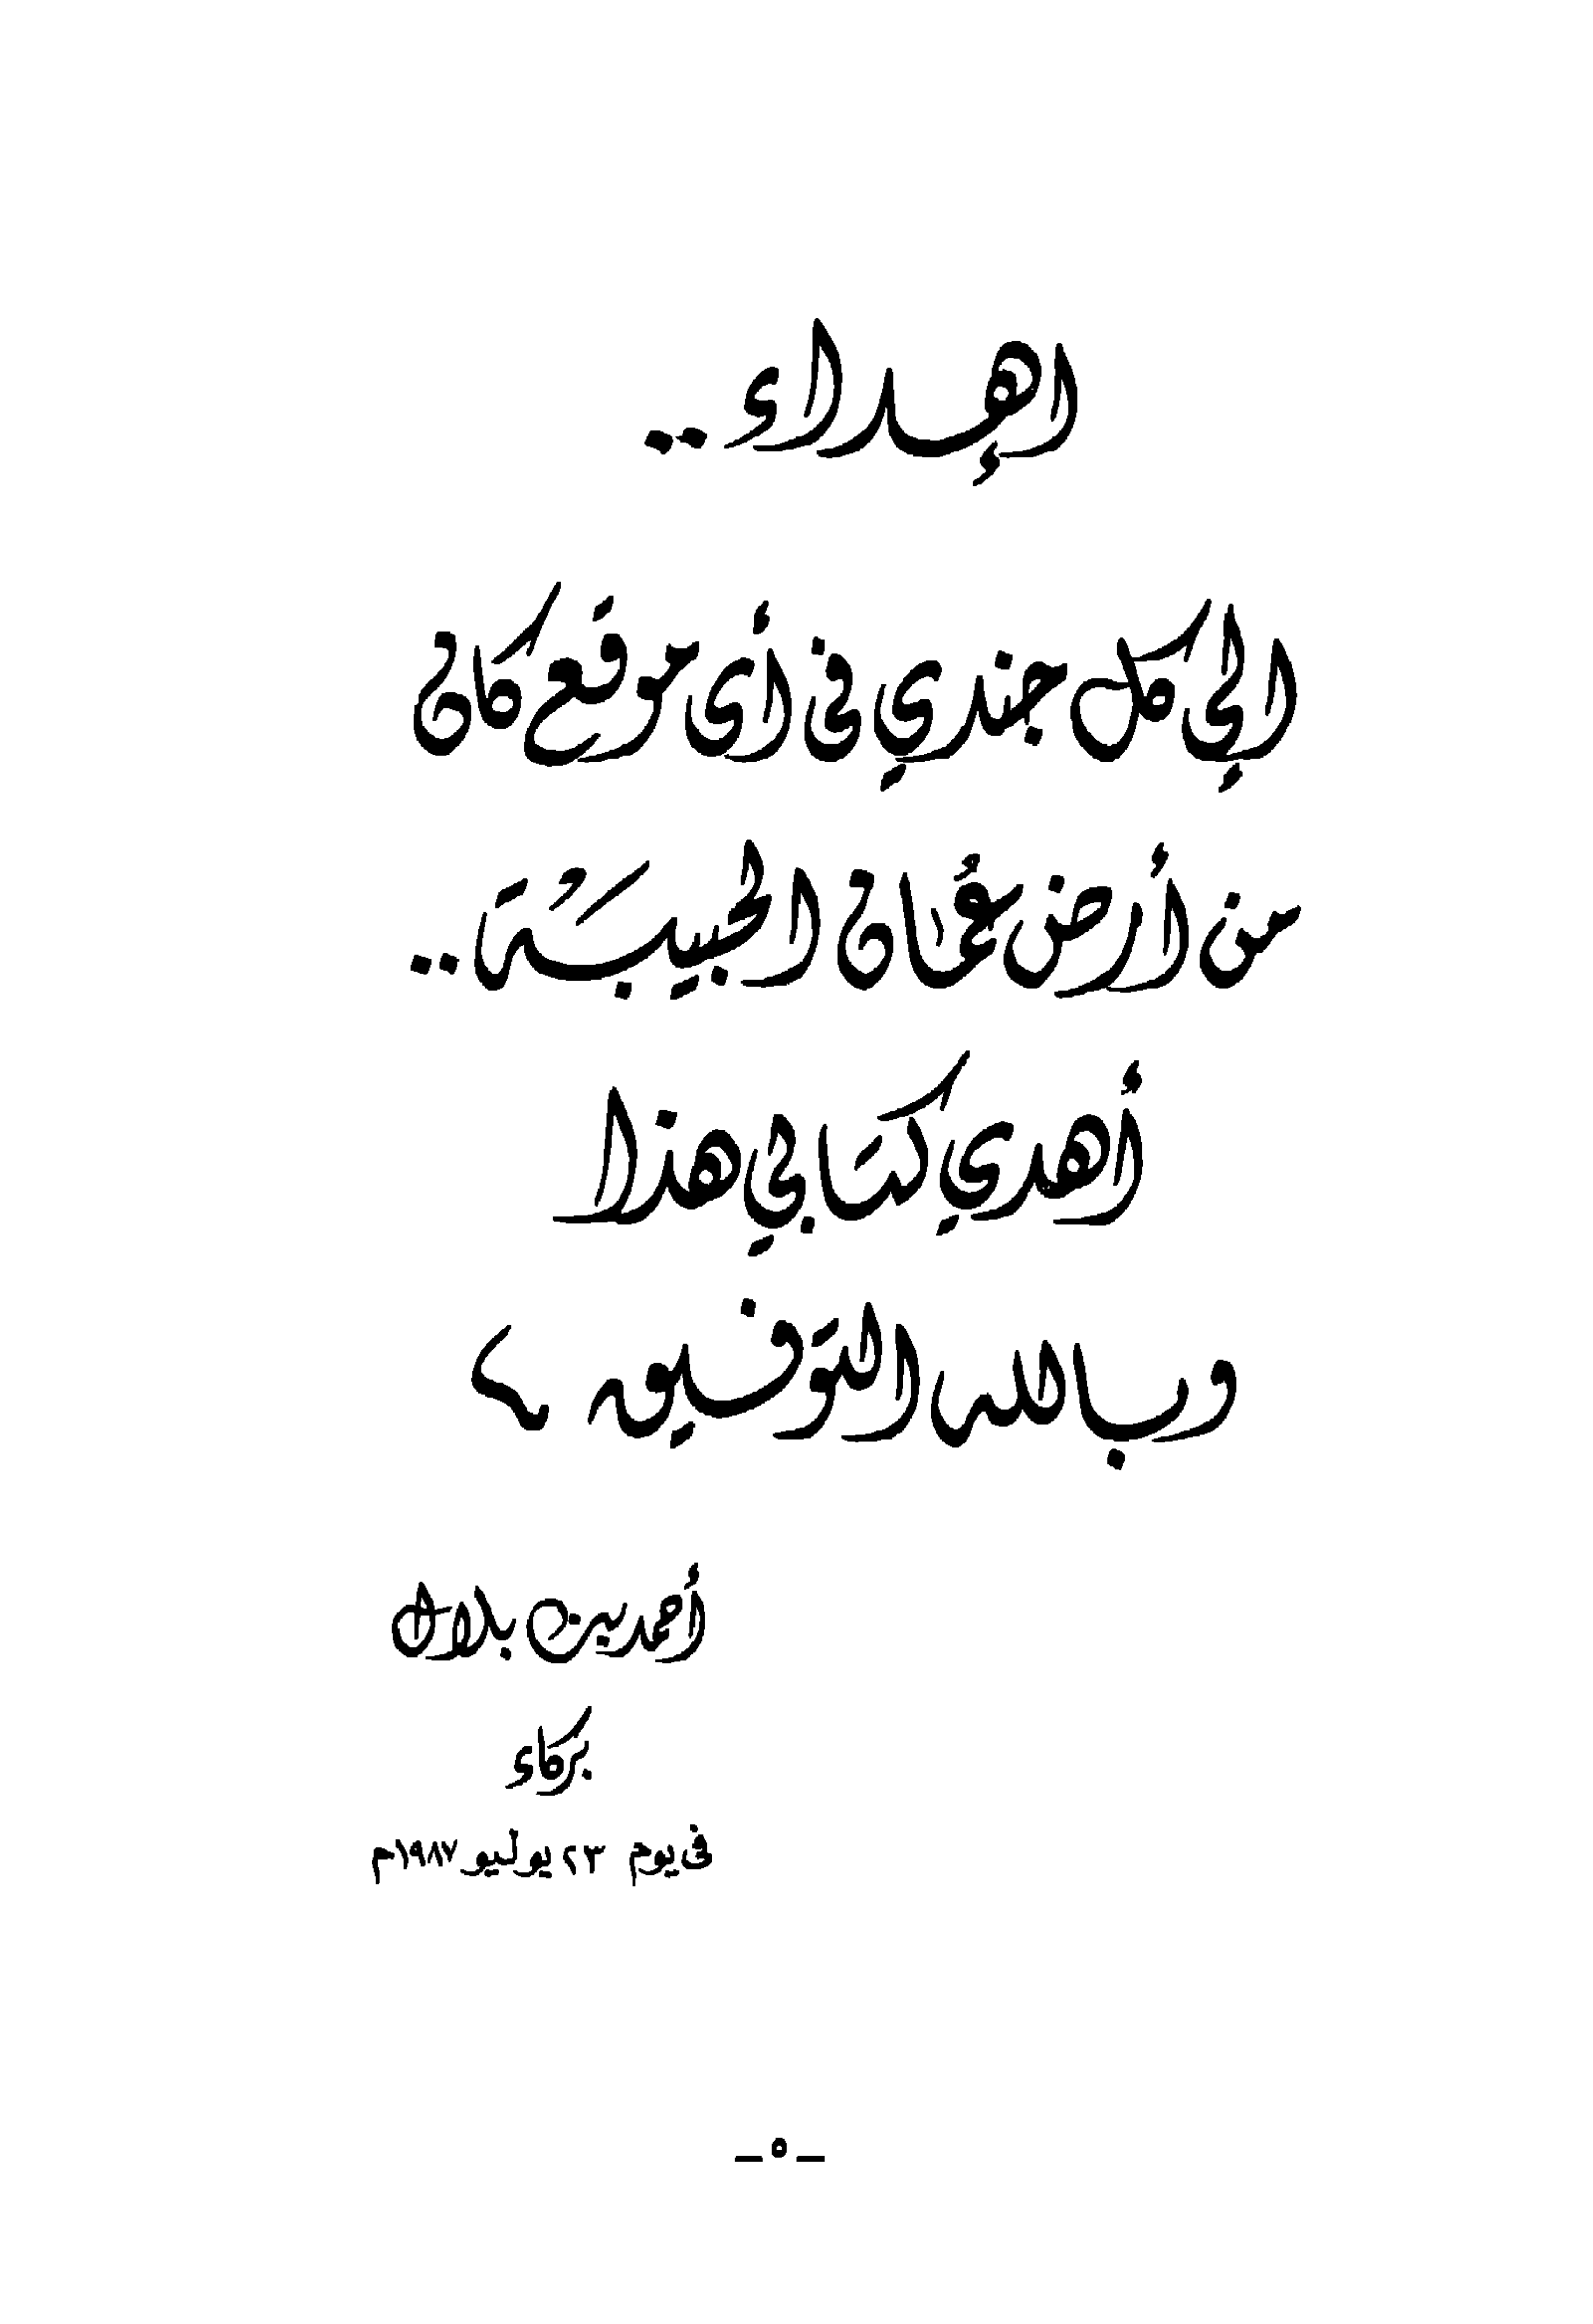 إهداء ..
إلى كل جندي في أي موقع كان
من أرض عُمان الحبيبة ..
أهدي كتابي هذا
وبالله التوفيق ،
أحمد بن بلال
بركاء
في يوم ٢٣ يوليو ١٩٨٧م
— ٥ —